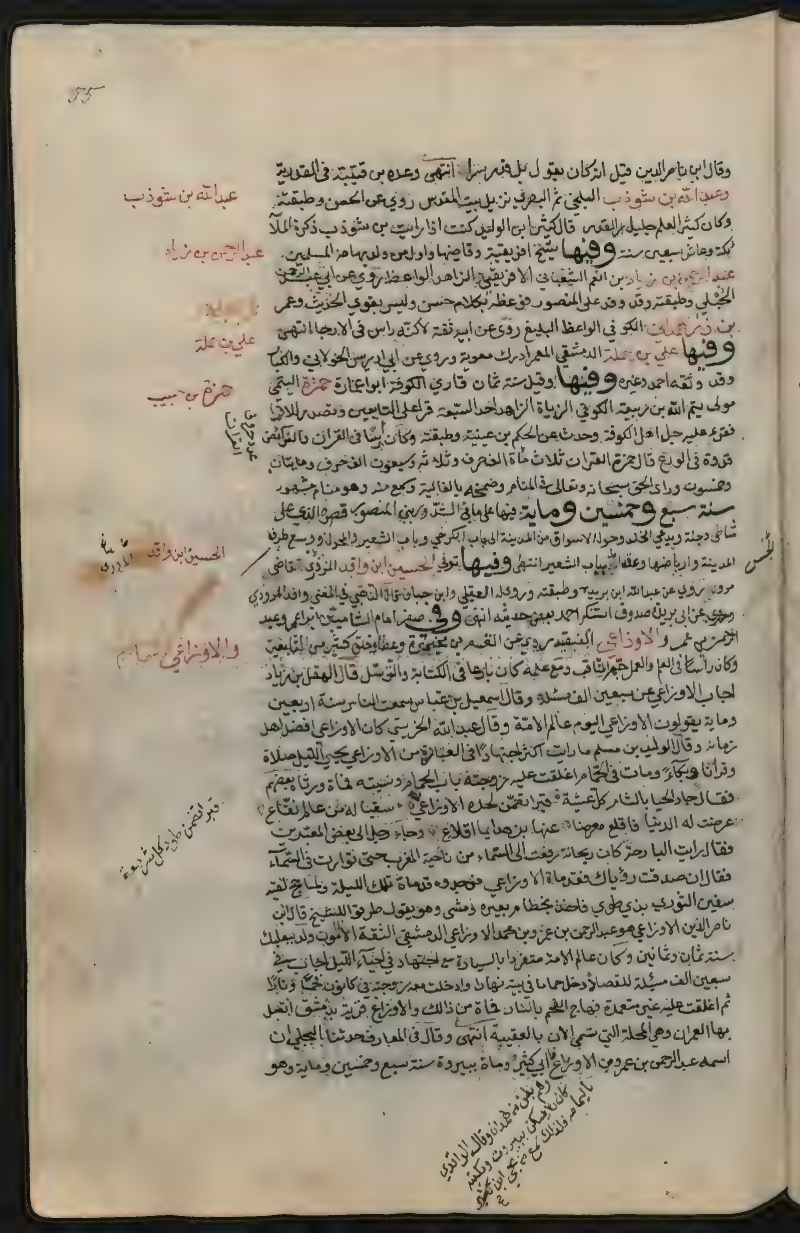 55
وقال ابن ناصر الدين قيل انه كان يقول بل قدر سرا انتهى وعده بن قتيبة في القدرية
وعبد الله بن شوذب البلخي ثم البصري نزيل بيت المقدس روى عن الحسن وطبقته
عبد الله بن شوذب
وكان كثير العلم جليل القدر قال كثير ابن الوليد كنت اذا رايت بن شوذب ذكرة الملآ
ئكة وعاش سبعين سنة وفيها شيخ افريقية وقاضيها واول من ولد بها من المسلمين
عبد الرحمن بن زياد
عبد الرحمن بن زياد بن انعم الشعباني الافريقي الزاهد الواعظ روى عن ابي عبد الرحمن
الحبلي وطبقته وقد وفد على المنصور فوعظه بكلام حسن وليس بقوي الحديث وعمر
بن ذر الهمداني الكوفي الواعظ البليغ روى عن ابيه ثقة لاكنه راس في الارجا انتهى
وفيها علي بن حملة الدمشقي المعمر ادرك معوية وروى عن ابي ادريس الخولاني والكبار
علي بن حملة
وقد وثقه احمد وغيره وفيها وقيل سنة ثمان قاري الكوفة ابو عمارة حمزة التيمي
حمزة بن حبيب
مولى تيم الله بن ربيعة الكوفي الزيات الزاهد احد السبعة قرا على التابعين وتصدر للاقرا
فقرء عليه جل اهل الكوفة وحدث عن الحكم بن عيينة وطبقته وكان راسا في القران والفرائض
قدوة في الورع قال حمزة القران ثلاث ماة الف حرف وثلاثة وسبعون الف حرف ومايتان
عدد حروف القران
وخمسون وراى الحق سبحانه وتعالى في المنام وضمخه بالغالية وسمع منه وهو منام مشهور
سنة سبع وخمسين وماية فيها على ما في الشذور بنى المنصور قصره الذي على
شاطئ دجلة ويدعى الخلد وحول الاسواق من المدينة الى باب الكرخ وباب الشعير والمحول ووسع طرق
المدينة وارباضها وعقد بباب الشعير انتهى وفيها توفي الحسين ابن واقد المروزي قاضي
الحسين ابن واقد
مرو روى عن عبد الله ابن بريدة وطبقته
صدوق استنكر احمد بعض حديثه انتهى وفي صفر امام الشاميين ابو عمرو عبد
الرحمن بن عمرو الاوزاعي الفقيه روى عن القسم بن مخيمرة وعطا وخلق كثير من التابعين
والاوزاعي
وكان راسا في العلم والعمل جم المناقب ومع علمه كان بارعا في الكتابة والترسل قال الهقل بن زياد
اجاب الاوزاعي عن سبعين الف مسئلة وقال اسمعيل بن عياش سمعت الناس سنة اربعين
وماية يقولون الاوزاعي اليوم عالم الامة وقال عبد الله الخريبي كان الاوزاعي افضل اهل
زمانه وقال الوليد بن مسلم ما رايت اكثر اجتهادا في العبادة من الاوزاعي يحيي الليل صلاة
وقرانا وبكاء ومات في الحمام اغلقت عليه زوجته باب الحمام ونسيته فماة ورثاه بعضهم
فقال جاد الحيا بالشام كل عشية قبرا تضمن لحده الاوزاعي
عرضت له الدنيا فاقلع معرضا عنها بزهد ايما اقلاع وجاء رجل الى بعض المعبرين
فقال رايت البارحة كان ريحانة رفعت الى السماء من ناحية المغرب حتى توارت في السماء
فقال ان صدقت رؤياك فقد ماة الاوزاعي فوجدوه قد ماة تلك الليلة ولما حج لقيه
سفين الثوري بذي طوى فاخذ بخطام بعيره ومشى وهو يقول طرقوا للشيخ قال ابن
ناصر الدين الاوزاعي هو عبد الرحمن بن عمرو بن محمد الاوزاعي الدمشقي الثقة المامون ولد ببعلبك
سنة ثمان وثمانين وكان عالم الامة منفردا بالسيادة مع اجتهاد في احياء الليل اجاب في
سبعين الف مسئلة للقصاد دخل حماما في بيته نهارا وادخلت معه زوجته في كانون فحما ونارا
ثم اغلقت عليه غير متعمدة فهاج الفحم بالنار فماة من ذالك والاوزاع قرية بدمشق اتصل
بها العمران وهي المحلة التي تسمى الان بالعقيبة انتهى وقال في المعارف حدثنا البجلي ان
اسمه عبد الرحمن بن عمرو من الاوزاع وماة ببيروة سنة سبع وخمسين وماية وهو